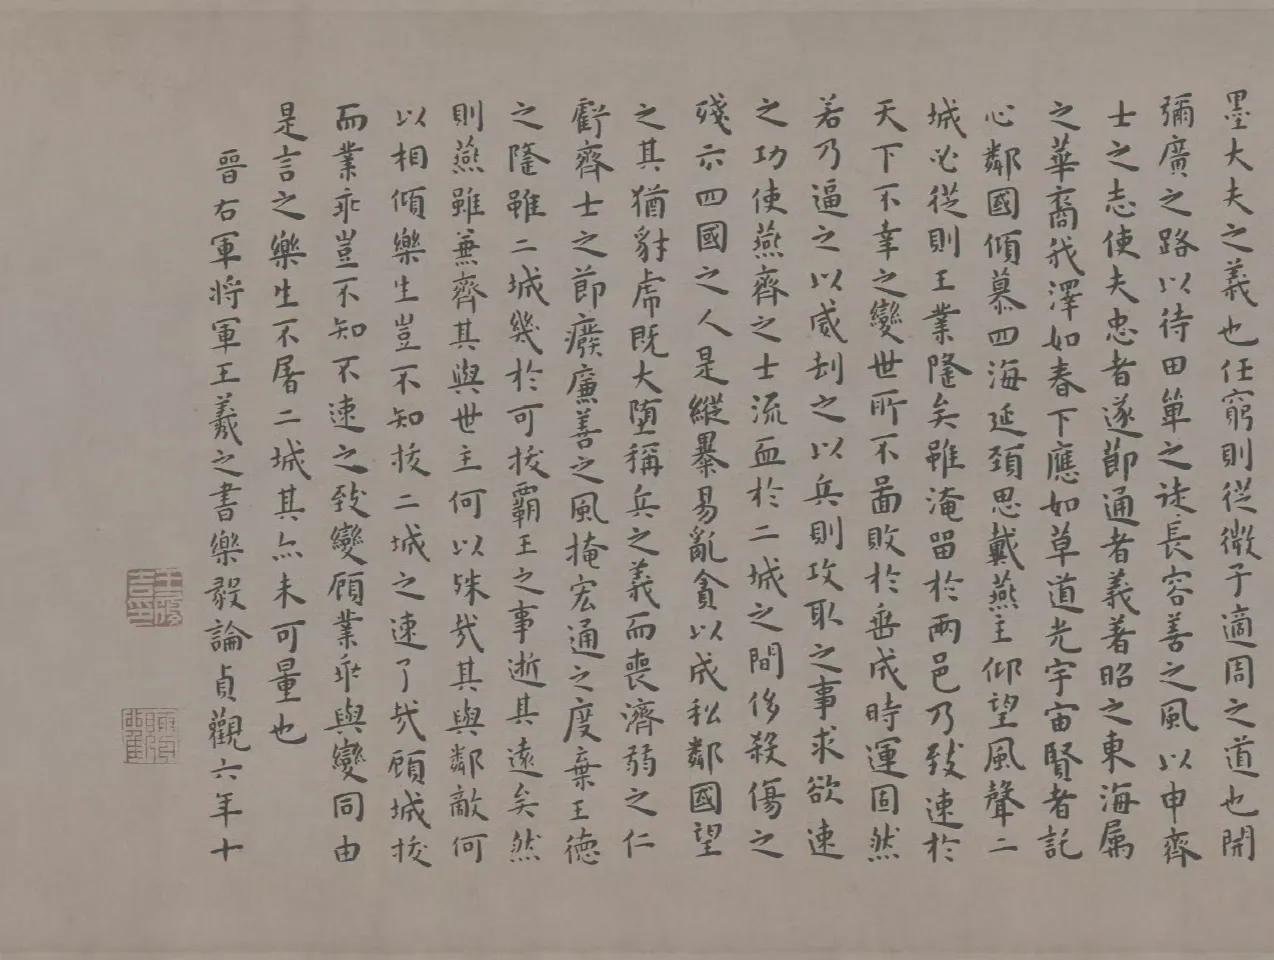 墨大夫之義也任窮則從微子適周之道也開
彌廣之路以待田單之徒長容善之風以申齊
士之志使夫忠者遂節通者義著昭之東海屬
之華裔我澤如春下應如草道光宇宙賢者託
心鄰國傾慕四海延頸思戴燕主仰望風聲二
城必從則王業隆矣雖淹留於兩邑乃致速於
天下不幸之變世所不圖敗於垂成時運固然
若乃逼之以威刦之以兵則攻取之事求欲速
之功使燕齊之士流血於二城之間侈殺傷之
殘示四國之人是縱暴易亂貪以成私鄰國望
之其猶豺虎既大墮稱兵之義而喪濟弱之仁
虧齊士之節癈廉善之風掩宏通之度棄王德
之隆雖二城幾於可拔霸王之事逝其遠矣然
則燕雖兼齊其與世主何以殊哉其與鄰敵何
以相傾樂生豈不知拔二城之速了哉顧城拔
而業乖豈不知不速之致變顧業乖與變同由
是言之樂生不屠二城其亦未可量也
晉右軍將軍王羲之書樂毅論貞觀六年十